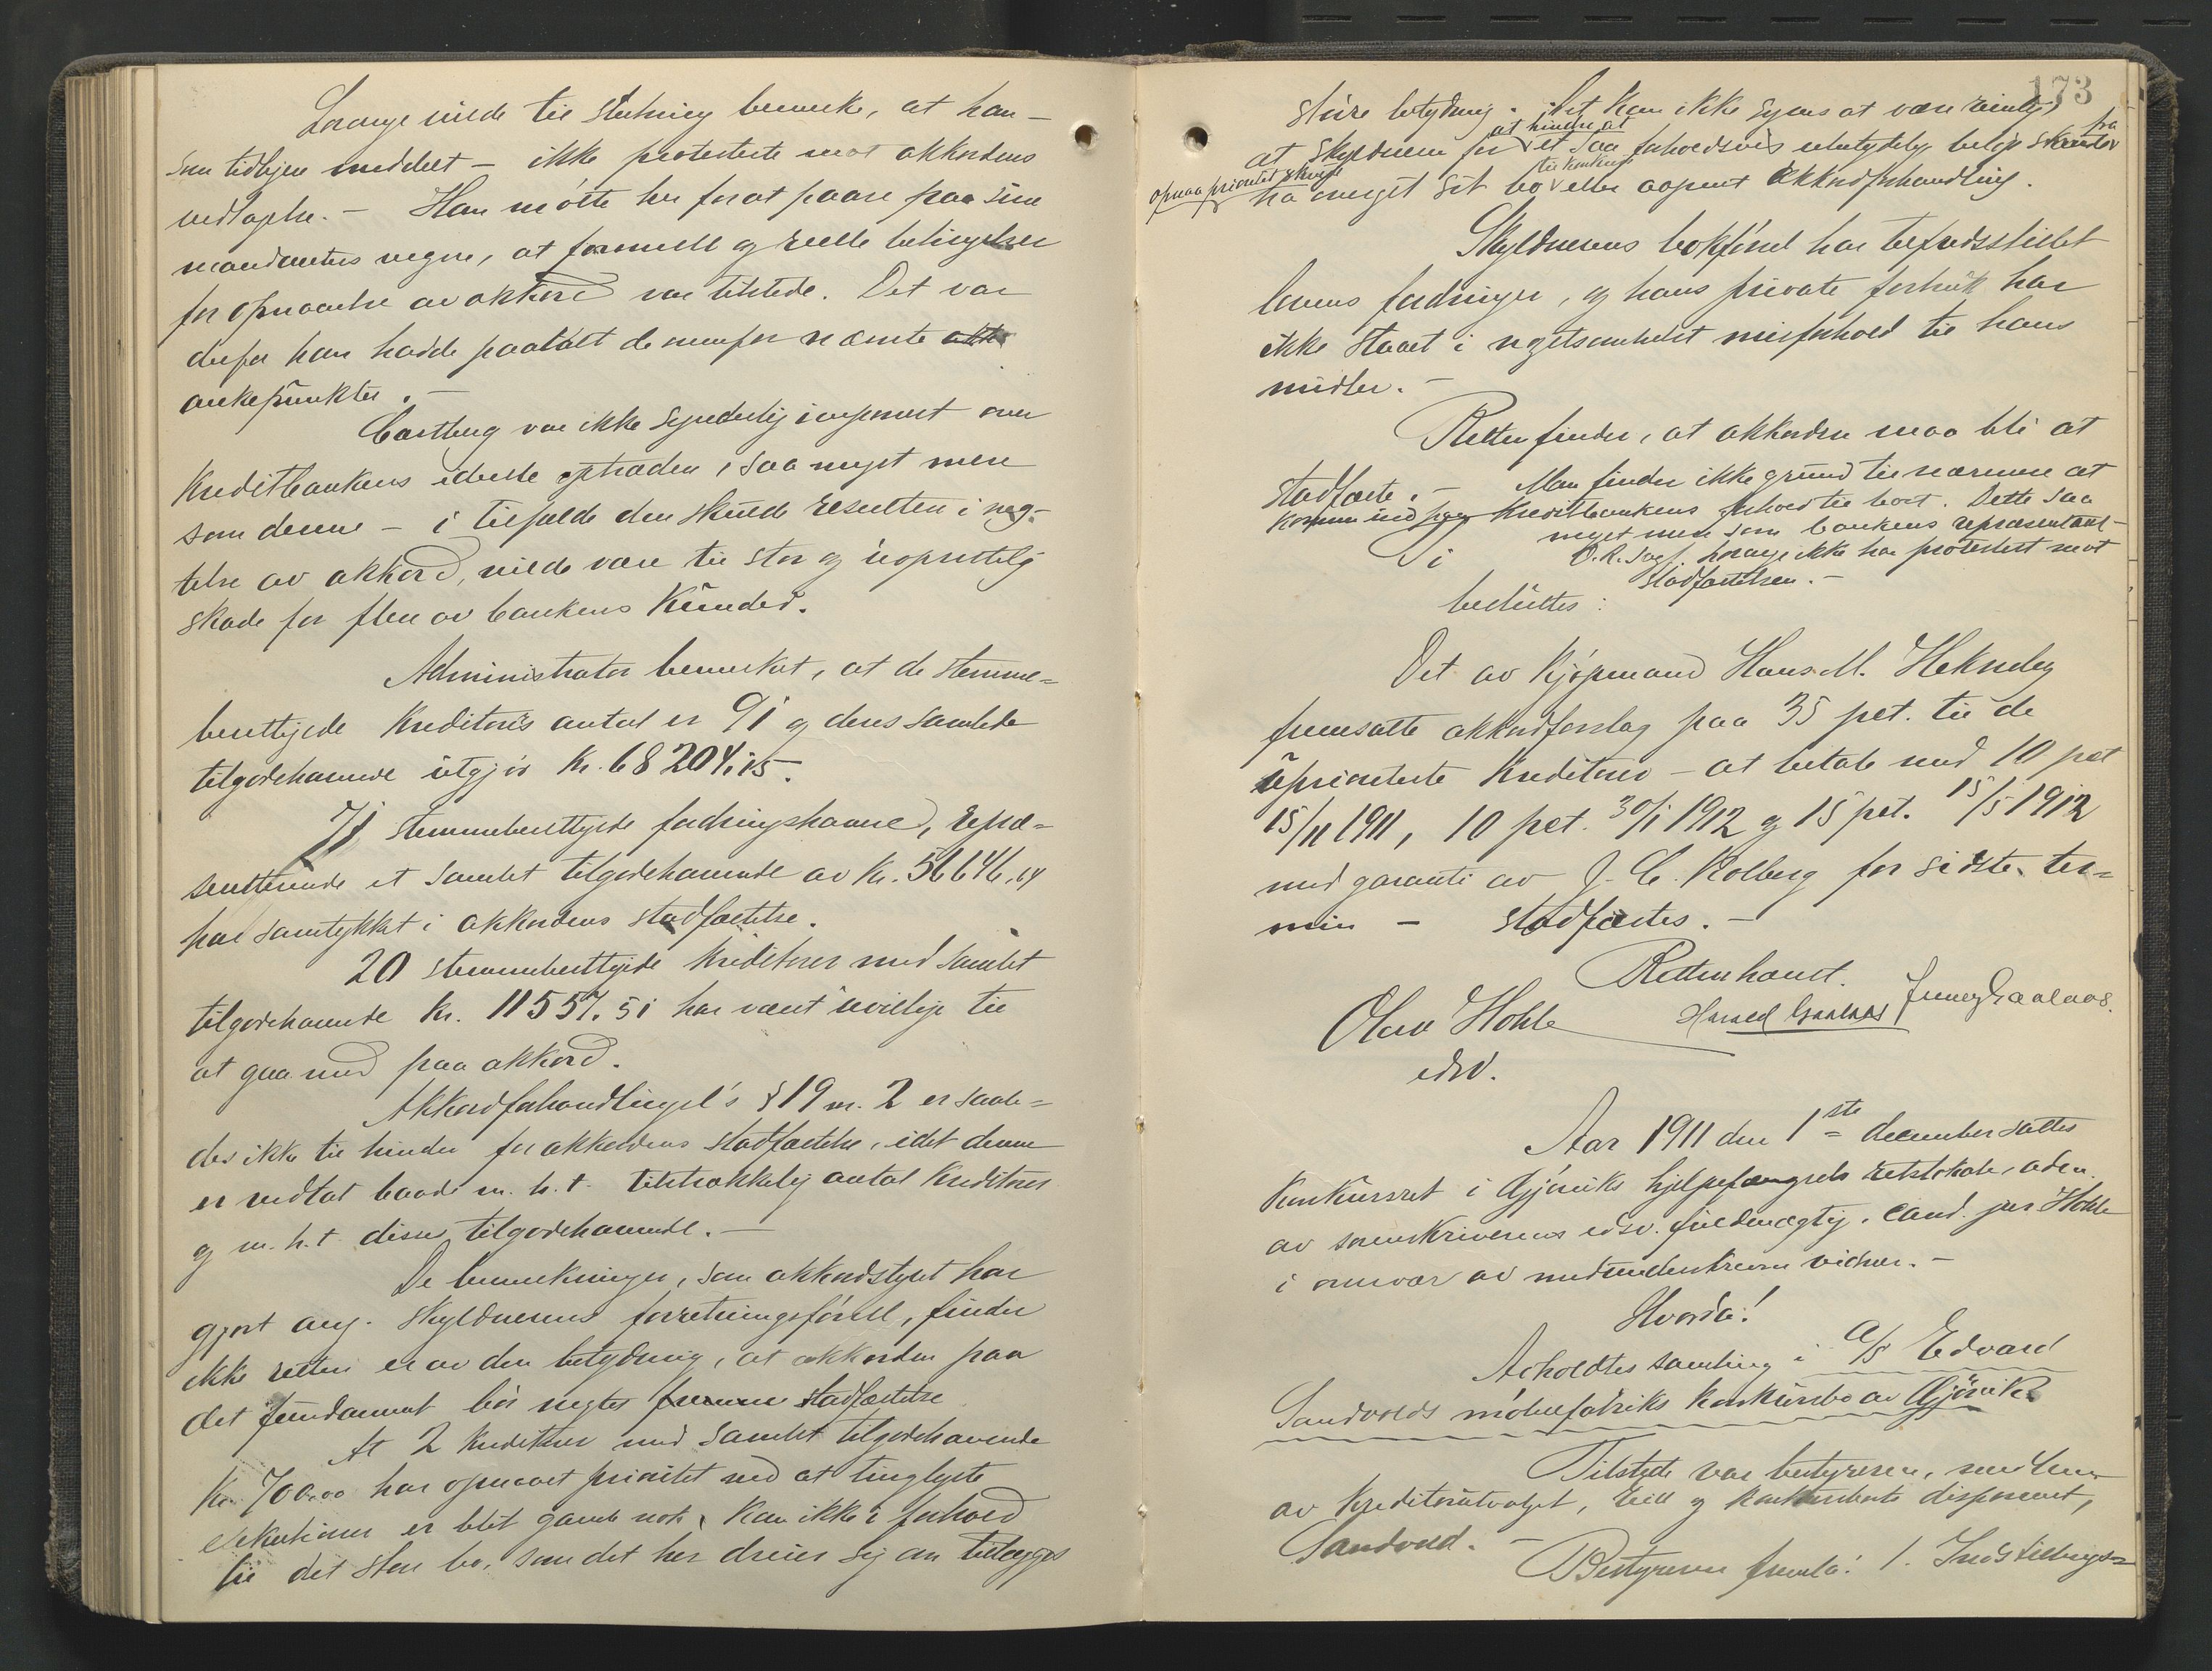 Lorange vilde til slutning bemerke, at han –
som tidligere meddelt – ikke protesterte mot akkordens
vedtagelse. – Han møtte her for at paase paa sine
mandanters vegne, at formelle og reelle betingelser
for opnaaelse av akkord var tilstede. Det var
derfor han hadde paatalt de ovenfor nævnte
ankepunkter. –
Castberg var ikke synderlig imponert over
Kreditbankens optræden, saa meget mere
som denne – i tilfælde den skulde resultere i neg-
telse av akkord, vilde være til stor og uoprettelig
skade for flere av bankens kunder.
Administrator bemerket, at de stemme=
berettigede kreditorers antal er 91 og deres samlede
tilgodehavende utgjør kr. 68204,15.
71 stemmeberettigede fordringshavere, repræ=
senterende et samlet tilgodehavende av kr. 56646,64
har samtykket i akkordens stadfæstelse.
20 stemmeberettigede kreditorer med samlet
tilgodehavende kr. 11557.51 har været uvillige til
at gaa med paa akkord.
Akkordforhandlingsl's § 19 nr. 2 er saale=
des ikke til hinder for akkordens stadfæstelse, idet denne
er vedtat baade m. h. t. tilstrækkelig antal kreditorer
og m. h. t. disses tilgodehavende. –
De bemerkninger, som akkordstyret har
gjort ang. skyldnerens forretningsførsel, finder
ikke retten er av den betydning, at akkorden paa
det fundament bør negtes stadfæstelse
At 2 kreditorer med samlet tilgodehavende
Kr. 700,00 har opnaaet prioritet ved at tinglyste
eksekutioner er blit gamle nok, kan ikke i forhold
til det store bo, som det her dreier sig om tillægges
173
større betydning. Det kan ikke synes at være rimelig,
at hindre at
at skyldneren for et saa forholdsvis ubetydelig beløp skulde
fra
opnaa prioritet skulde
til konkurs
ha overgit sit bo eller aapnet akkordforhandling.
Skyldnerens bokførsel har tilfredsstillet
lovens fordringer, og hans private forbruk har
ikke staaet i nogetsomhelst misforhold til hans
midler. –
Retten finder, at akkorden maa bli at
stadfæste. – Man finder ikke grund til nærmere at
komme ind paa Kreditbankens forhold til boet. Dette saa
meget mere som bankens repræsentant –
O.R. sagf. Lorange ikke har protestert mot
stadfæstelsen. –
besluttes:
Det av kjøpmand Hans M. Hekneby
fremsatte akkordforslag paa 35 pct. til de
uprioriterte kreditorer – at betale med 10 pct
15/11 1911, 10 pct. 30/1 1912 og 15 pct. 15/5 1912
med garanti av J. C. Kolberg for sidste ter=
min – stadfæstes. –
Retten hævet.
Olav Hohle
edsv.
Aar 1911 den 1ste december sattes
konkursret i Gjøviks hjelpefængsels retslokale, aden.
av sorenskriverens edsv. fuldmægtig, cand. jur Hohle
i nærvær av medundertegnede vidner. –
Hvorda!
Avholdtes samling i A/S Edvard
Sandvolds møbelfabriks konkursbo av Gjøvik.
Tilstede var bestyreren, medlem
av kreditorutvalget, og konkursboets disponent,
Sandvold. –
Bestyreren fremla: 1. Indstillings=